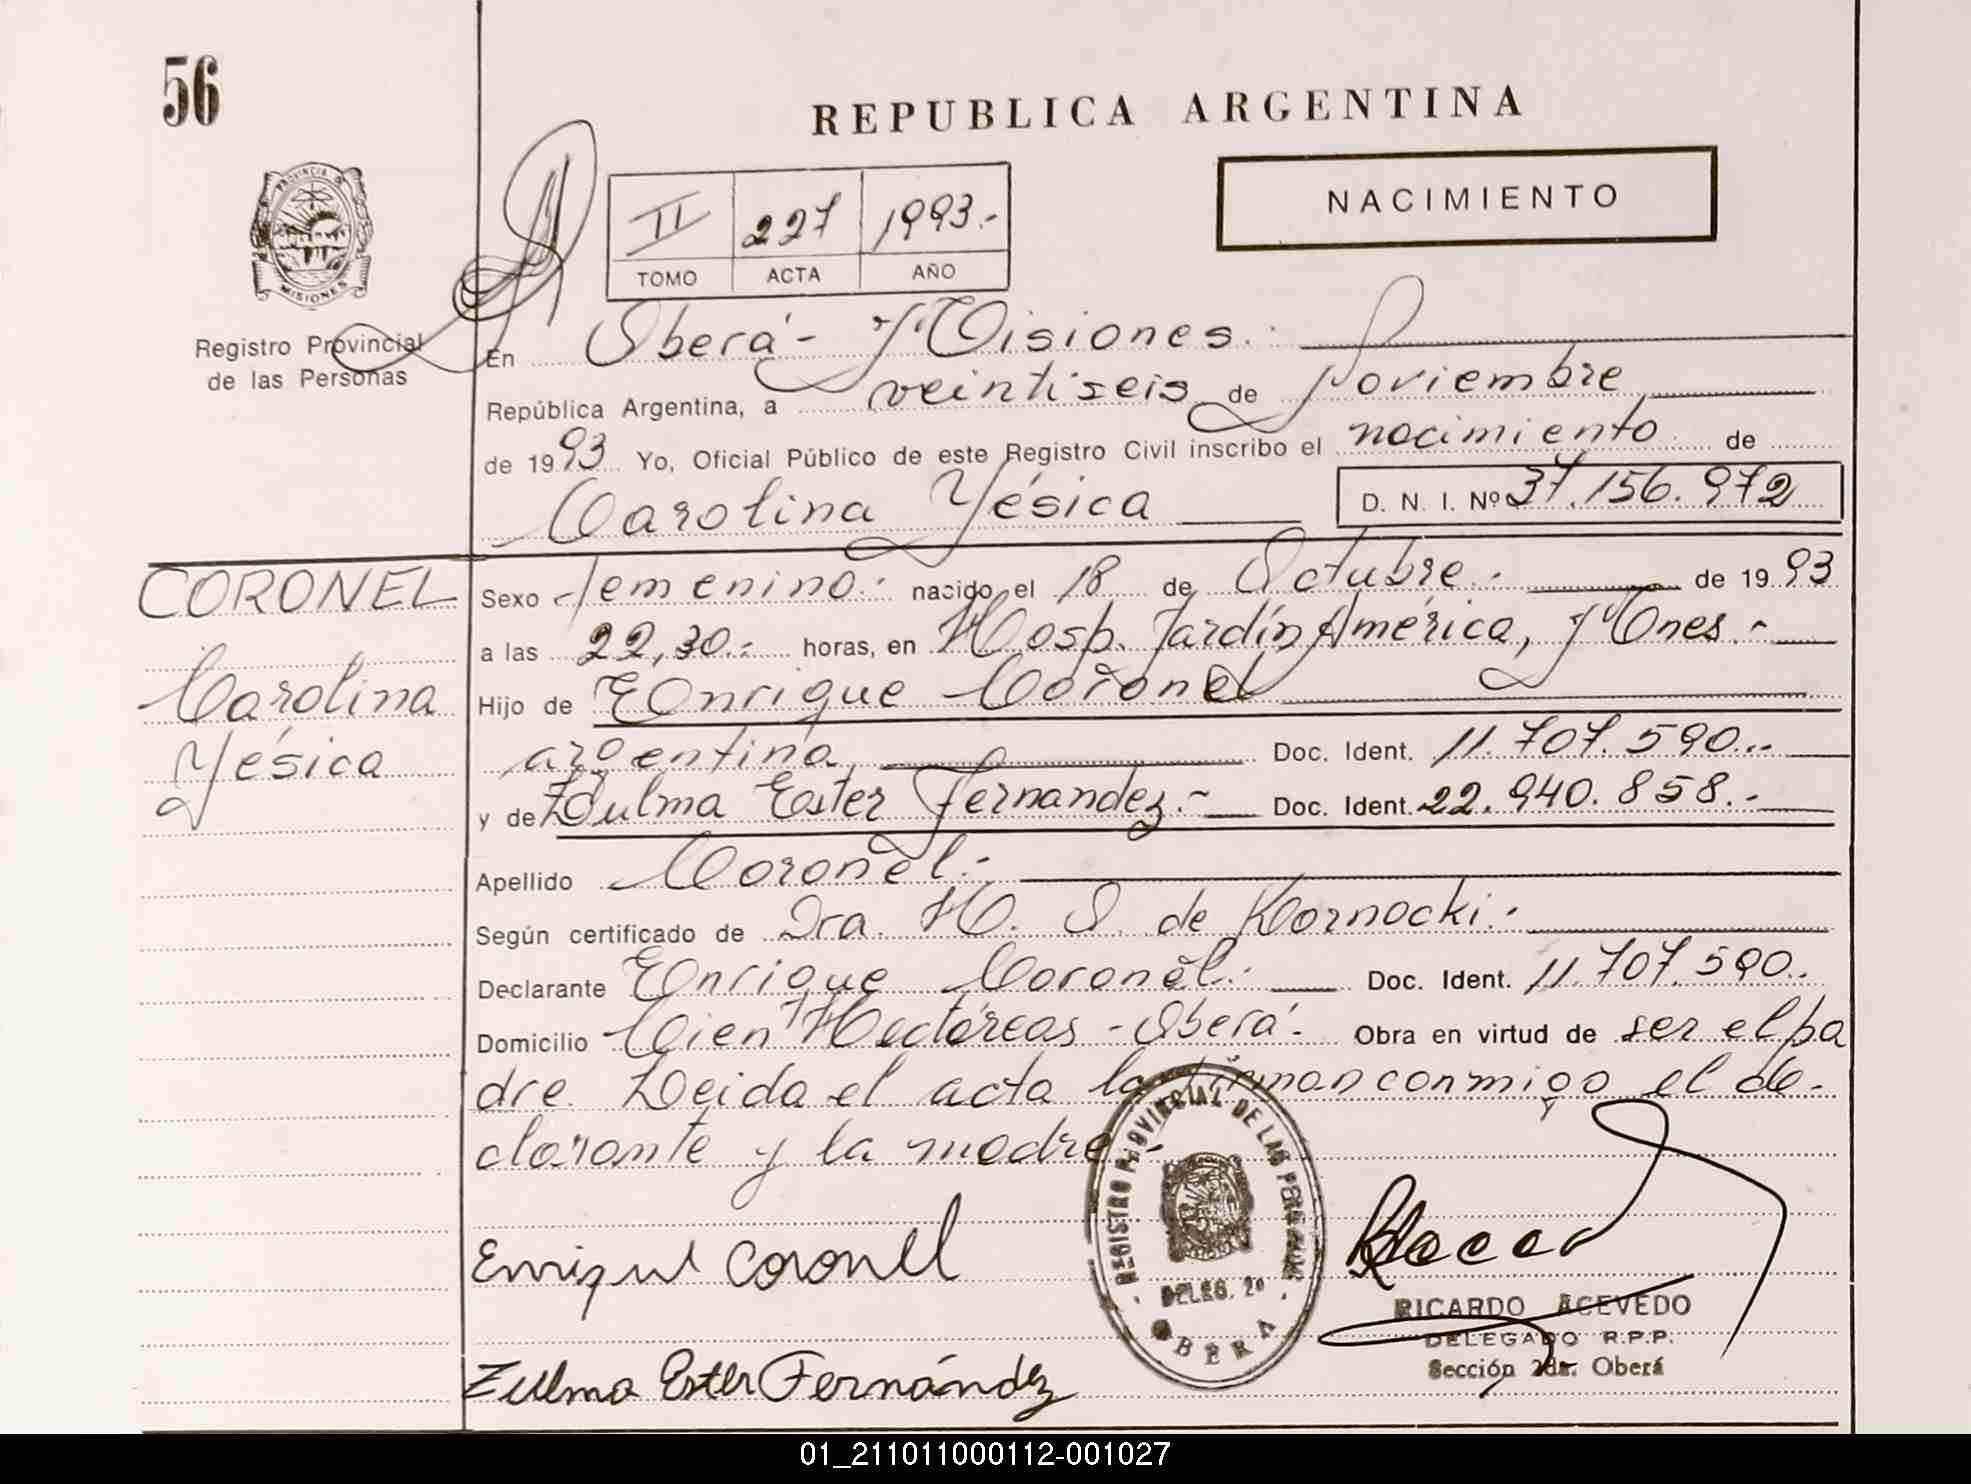 56
REPUBLICA ARGENTINA
NACIMIENTO
PROVINCIA D
MISIONES
Registro Provincial
de las Personas
II 227 1993.-
TOMO ACTA AÑO
En Oberá - Misiones.
República Argentina, a veintiseis de Noviembre
de 1993 Yo, Oficial Público de este Registro Civil inscribo el nacimiento de
Carolina Yésica D. N. I. Nº 37.156.972
CORONEL
Carolina
Yésica
Sexo femenino.- nacido el 18 de Octubre.- de 1993
a las 22,30.- horas, en Hosp. Jardín América, Mnes.-
Hijo de Enrique Coronel
argentina Doc. Ident. 11.707.590..
y de Zulma Ester Fernandez.- Doc. Ident. 22.940.858.-
Apellido Coronel.-
Según certificado de Dra. H. O. de Kornocki.-
Declarante Enrique Coronel.- Doc. Ident. 11.707.590..
Domicilio Cien Hectáreas - Oberá.- Obra en virtud de ser el pa
dre. Leida el acta la firman conmigo el de-
clarante y la madre.-
REGISTRO PROVINCIAL DE LAS PERSONAS
DELEG. 2º
OBERA
Enrique Coronel
RICARDO ACEVEDO
DELEGADO R.P.P.
Sección 2da. Oberá
Zulma Ester Fernández
01_211011000112-001027